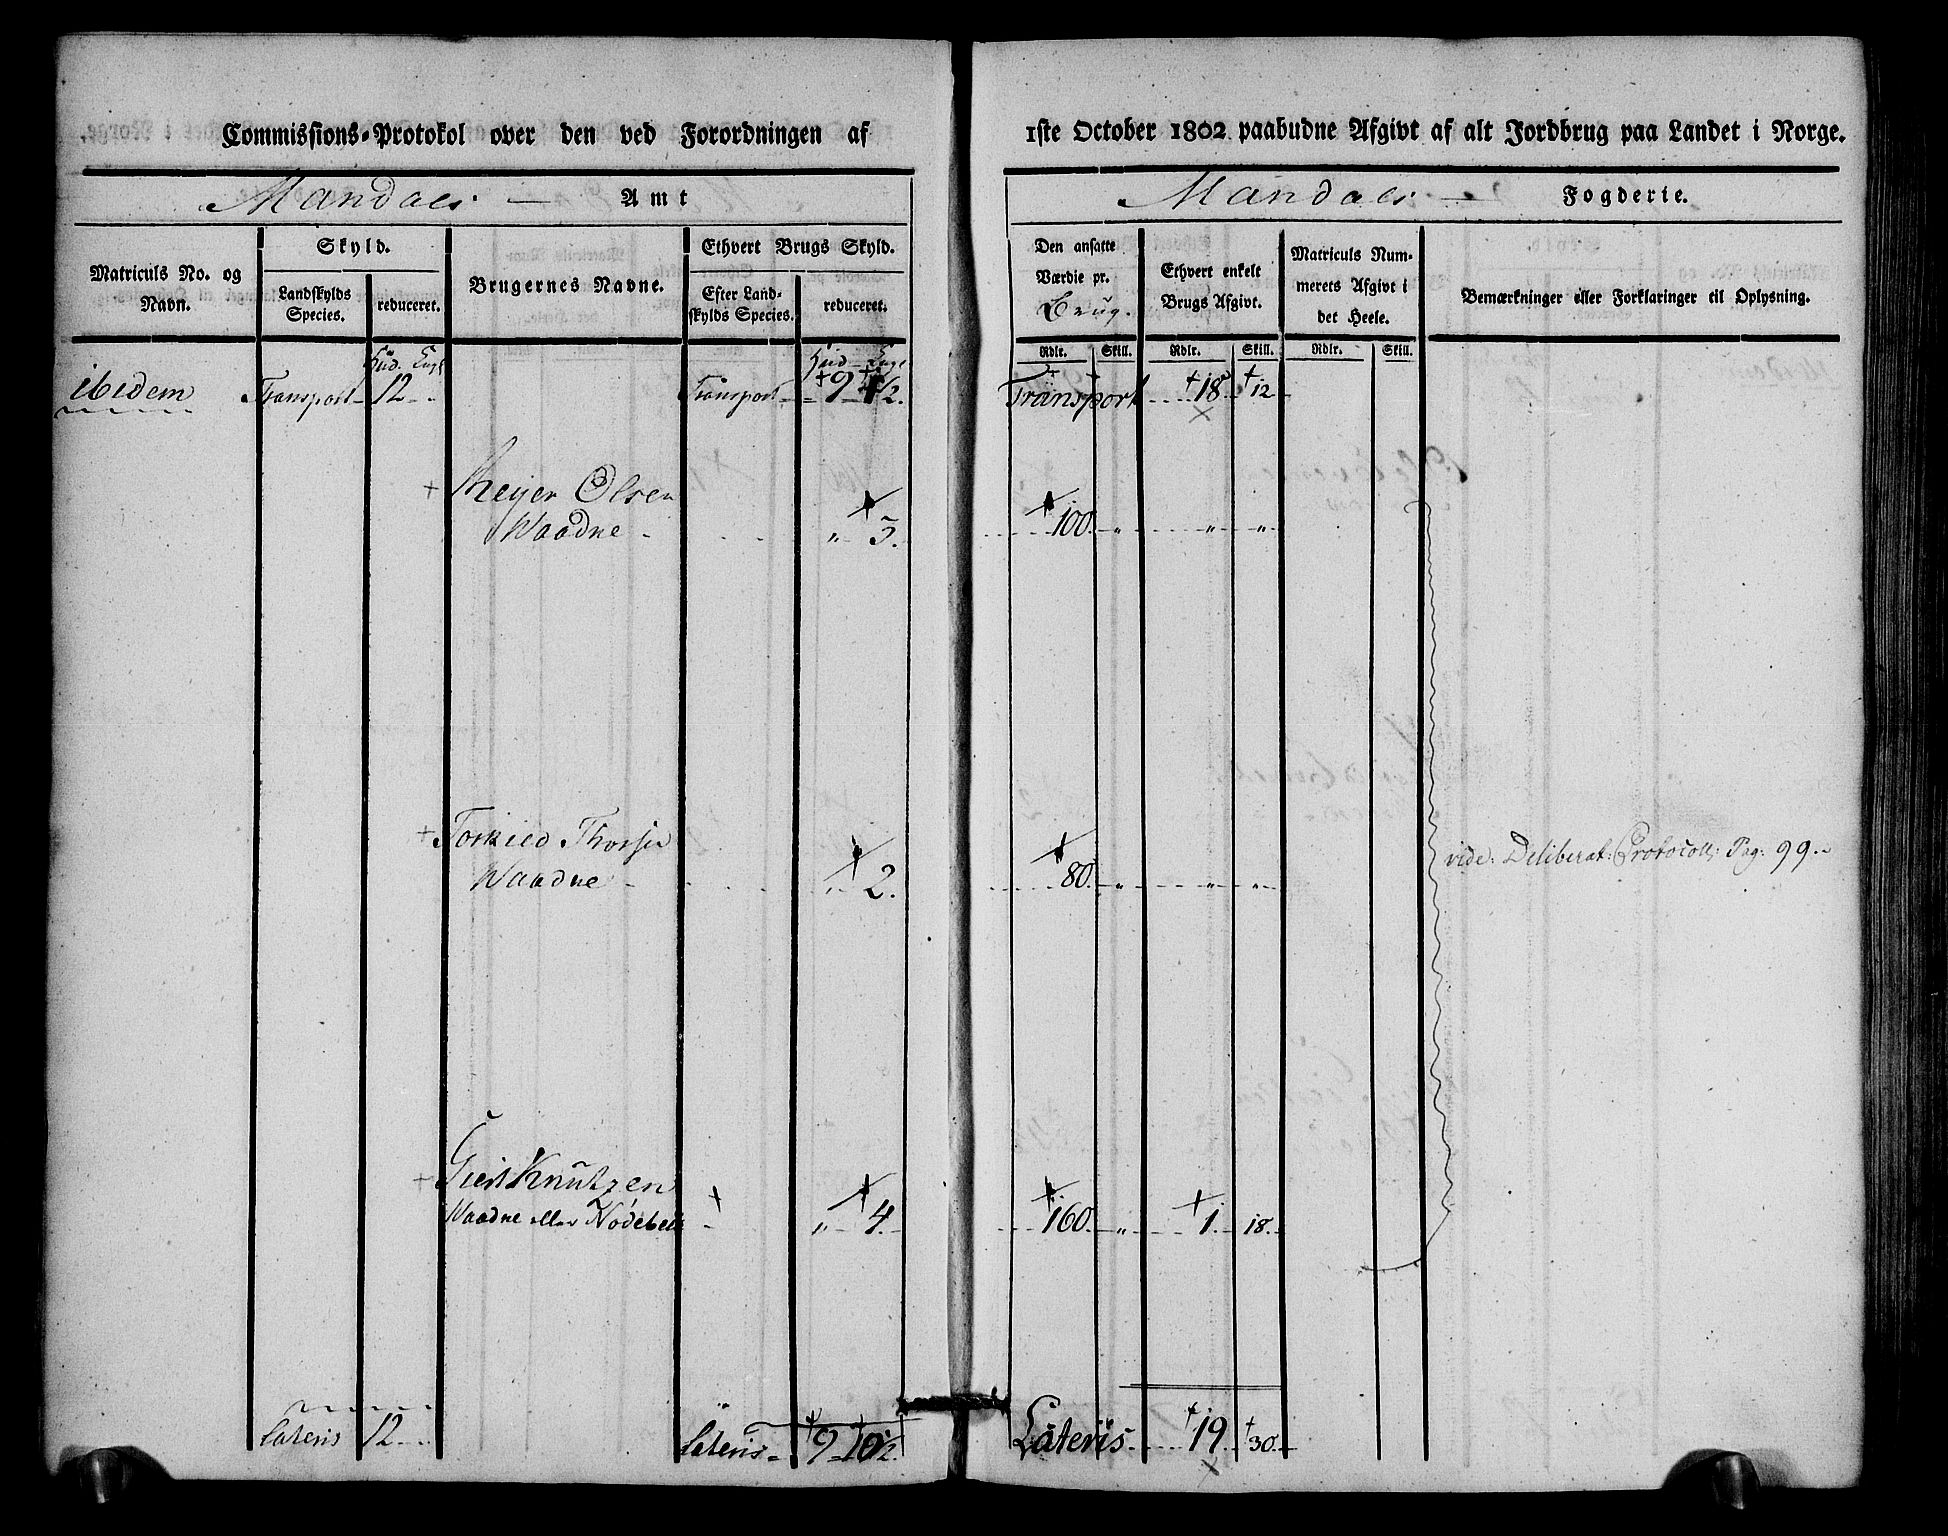 Commissions-Protokol over den ved Forordningen af
1ste October 1802 paabudne Afgivt af alt Jordbrug paa Landet i Norge.
Mandals Amt
Mandals Fogderie.
Matriculs No. og Navn.
Skyld.
Landskylds Species.
reduceret.
Brugernes Navne.
Ethvert Brugs Skyld.
Efter Landskylds Species.
reduceret.
Den ansatte Værdie pr. Brug.
Ethvert enkelt Brugs Afgivt.
Matriculs Nummerets Afgivt i det Heele.
Bemærkninger eller Forklaringer til Oplysning.
Rdlr. Skill. Rdlr. Skill. Rdlr. Skill.
Hud. Hud
ibidem Transport 12 Transport 9 Transport 18 12
Reyer Olsen
Waadne 3. 100. „ „ „
Torkild
Waadne „ 2. 80. „ „ „
vide: Deliberat: Protocoll: Pag: 99.
Knutzen
Waadne eller „ 4. 160. „ 1. 18.
Lateris 12 Lateris 9 10½ Lateris 19 30.